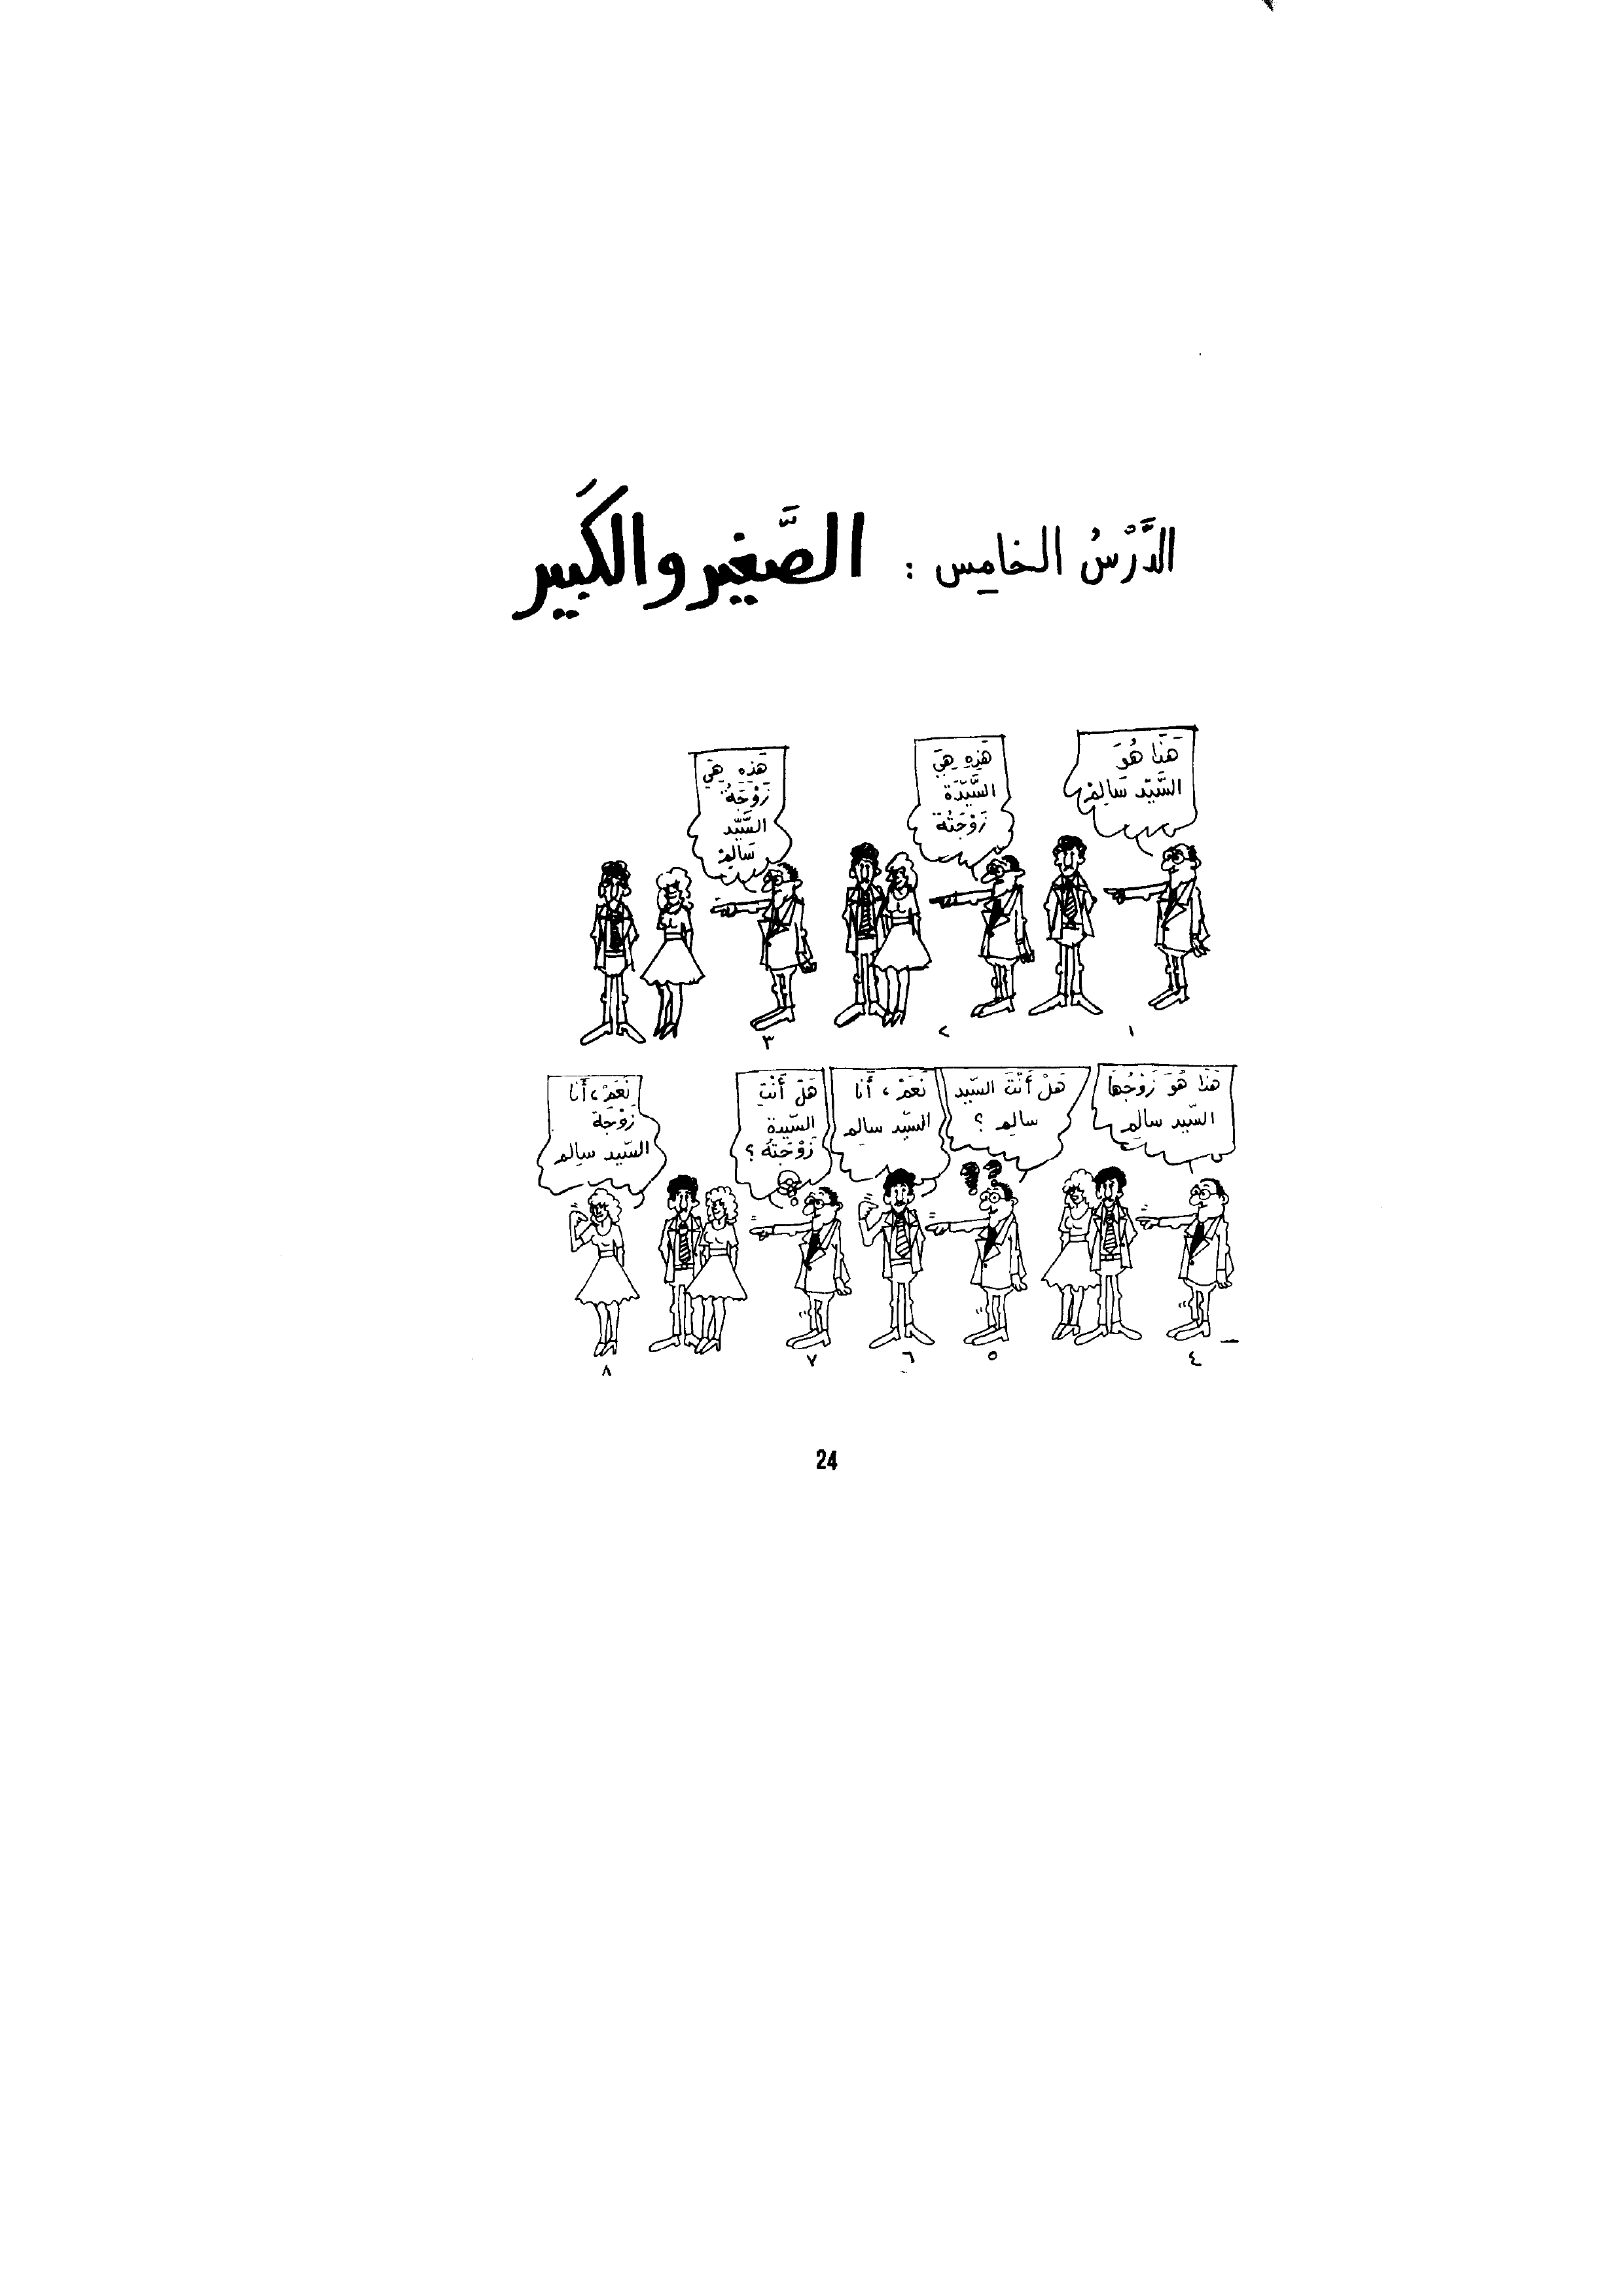 الدَّرْسُ الخامِس : الصَّغير والكَبير
هَذا هُوَ
السَّيّد سَالِمْ
١
هَذِهِ هِيَ
السَّيّدَة
زَوْجَتُهُ
٢
هَذِهِ هِيَ
زَوْجَةُ
السَّيّد
سَالِمْ
٣
هَذا هُوَ زَوْجُهَا
السّيد سالِم
٤
هَلْ أَنْتَ السّيد
سالِم ؟
٥
نَعَمْ ، أَنا
السّيد سالِم
٦
هَلْ أَنْتِ
السّيدة
زَوْجَتُهُ ؟
٧
نَعَمْ ، أَنا
زَوْجَة
السّيد سالِم
٨
24